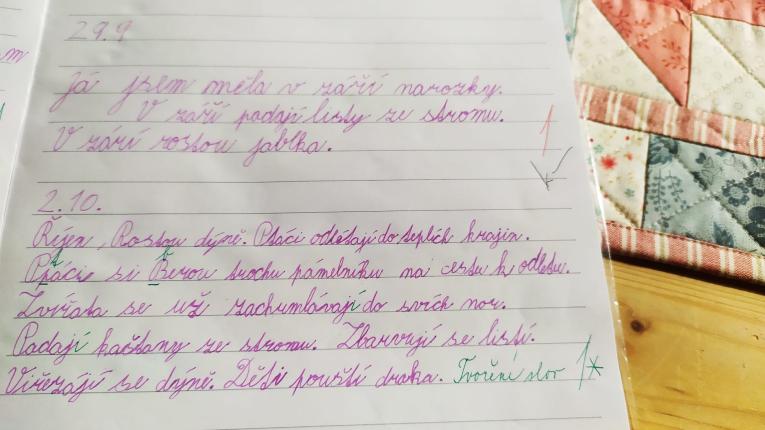 29.9
m
Já jsem měla v září narozky.
V září padají listy ze stromu.
V září rostou jablka.
1
2.10.
Říjen, Rostou dýně. Ptáci odlétají do teplích krajin.
Ptáci si Berou trochu pámelníku na cestu k odletu.
Zvířata se už zachumlávají do svích nor.
Padají kaštany ze stromu. Zbarvují se listí.
Viřezají se dýně. Děti pouští draka. Tvoření slov 1*